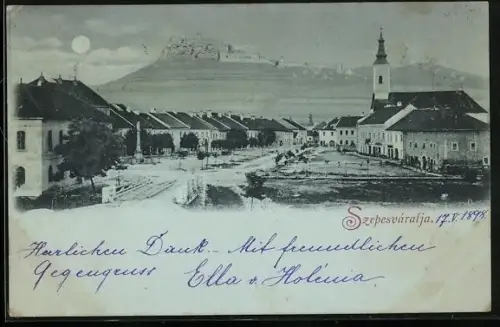 Szepesváralja, 17.V.1898.
Herzlichen Dank. - Mit freundlichen
Gegengruss Ella v. Holénia